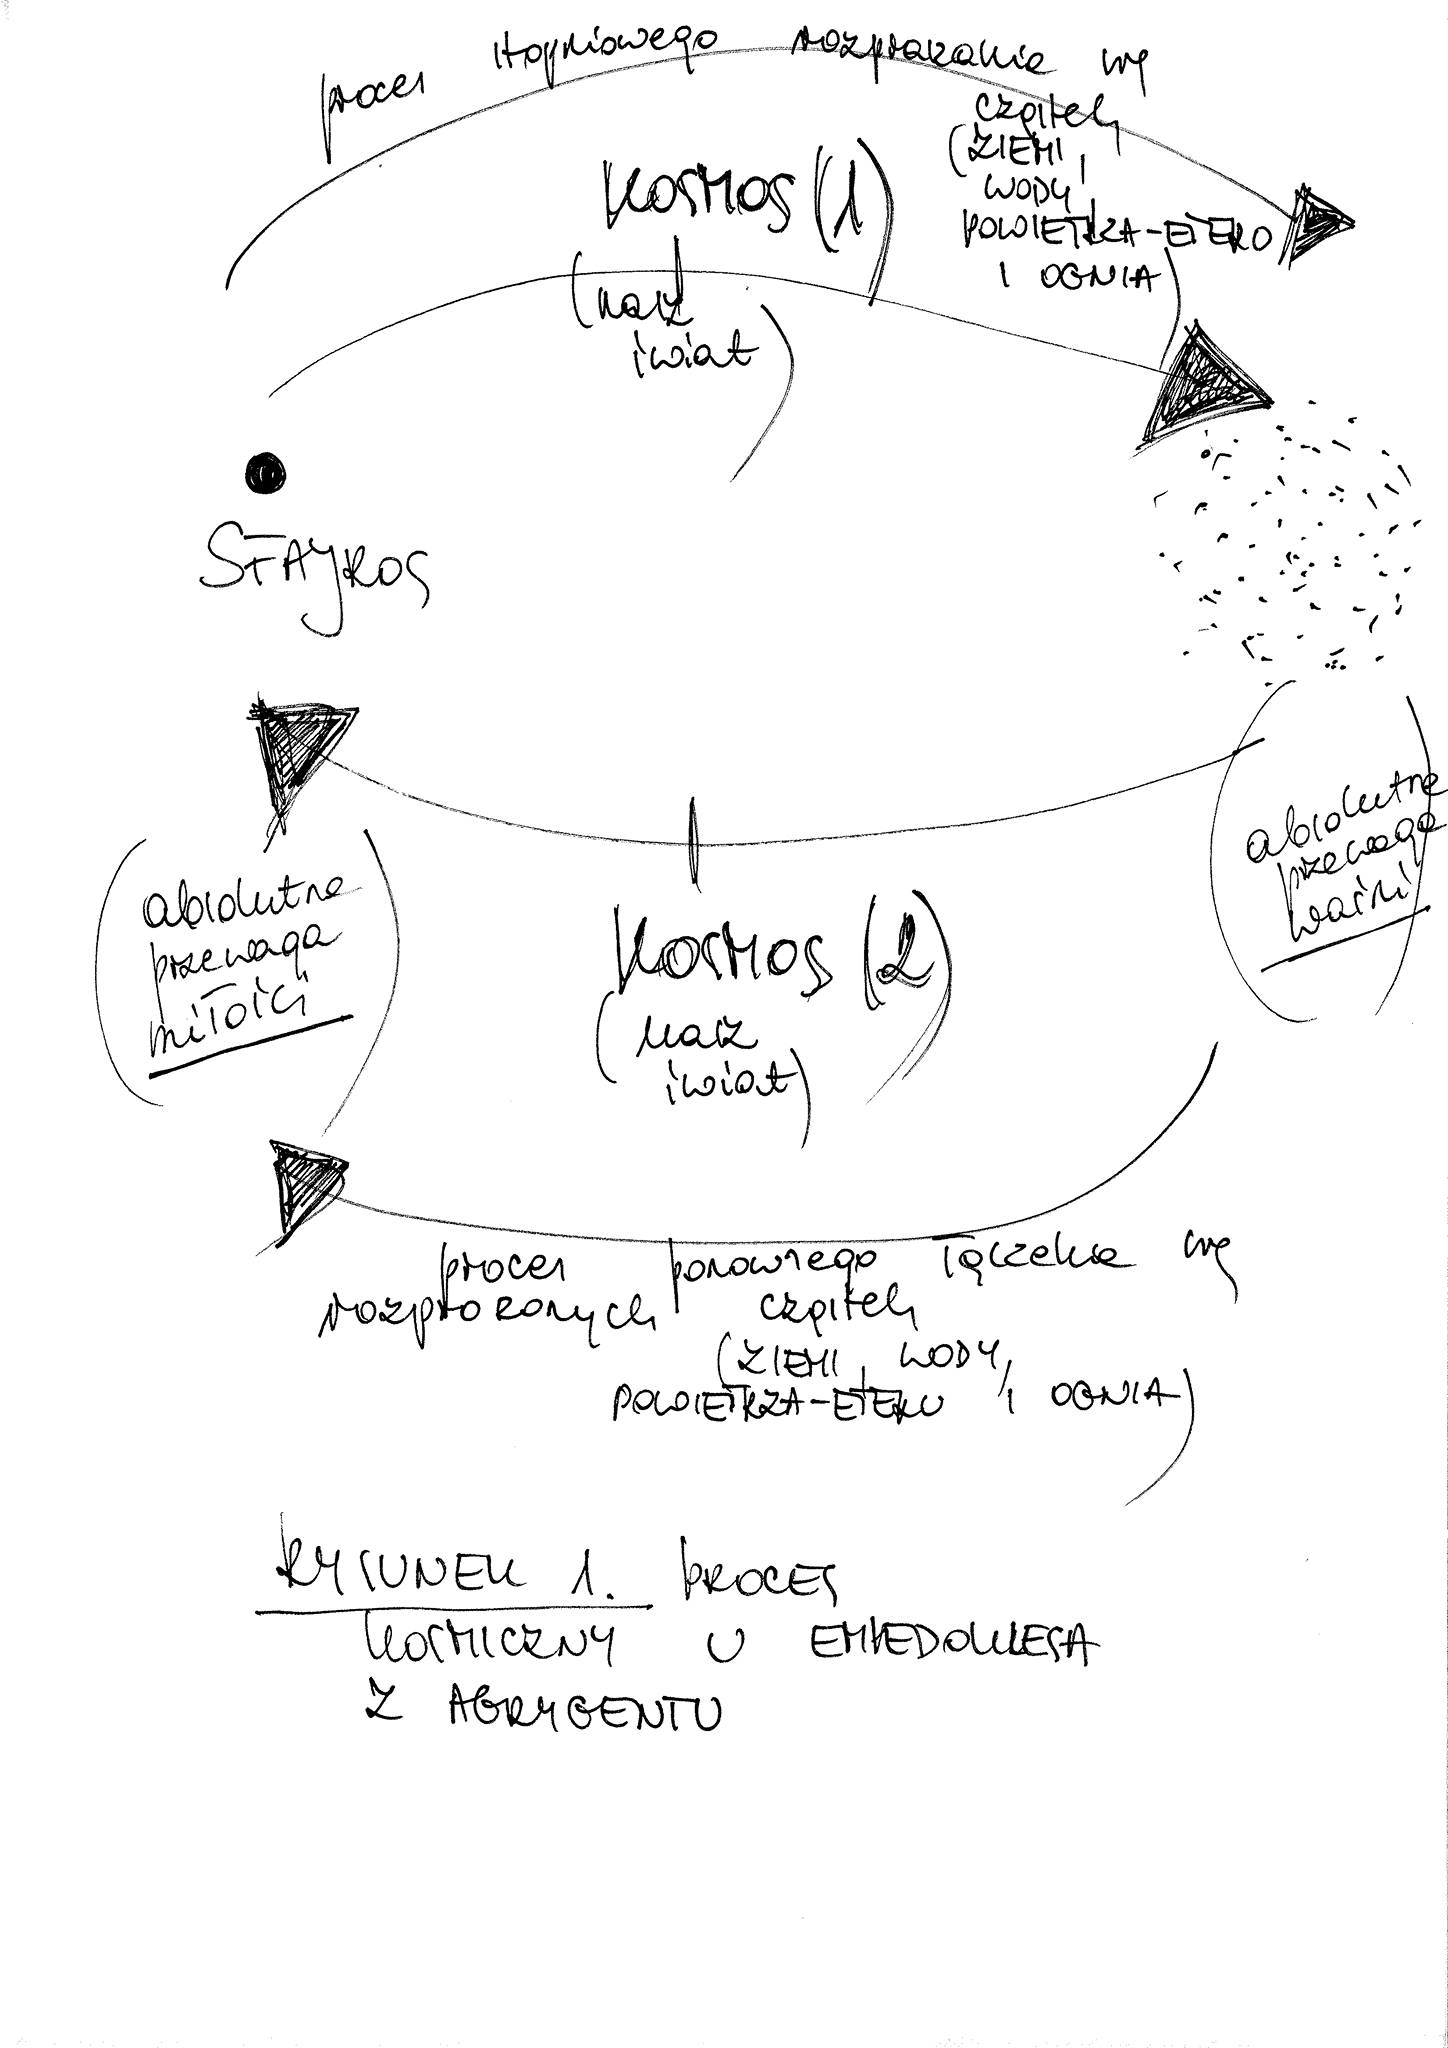 proces stopniowego rozpraszania się
cząstek
(ZIEMI,
WODY,
POWIETRZA-ETERU
I OGNIA)
KOSMOS (1)
(nasz
świat)
SFAJROS
absolutna
przewaga
waśni
absolutna
przewaga
miłości
KOSMOS (2)
(nasz
świat)
proces ponownego łączenia się
rozproszonych cząstek
(ZIEMI, WODY,
POWIETRZA-ETERU I OGNIA)
RYSUNEK 1. PROCES
KOSMICZNY U EMPEDOKLESA
Z AGRYGENTU